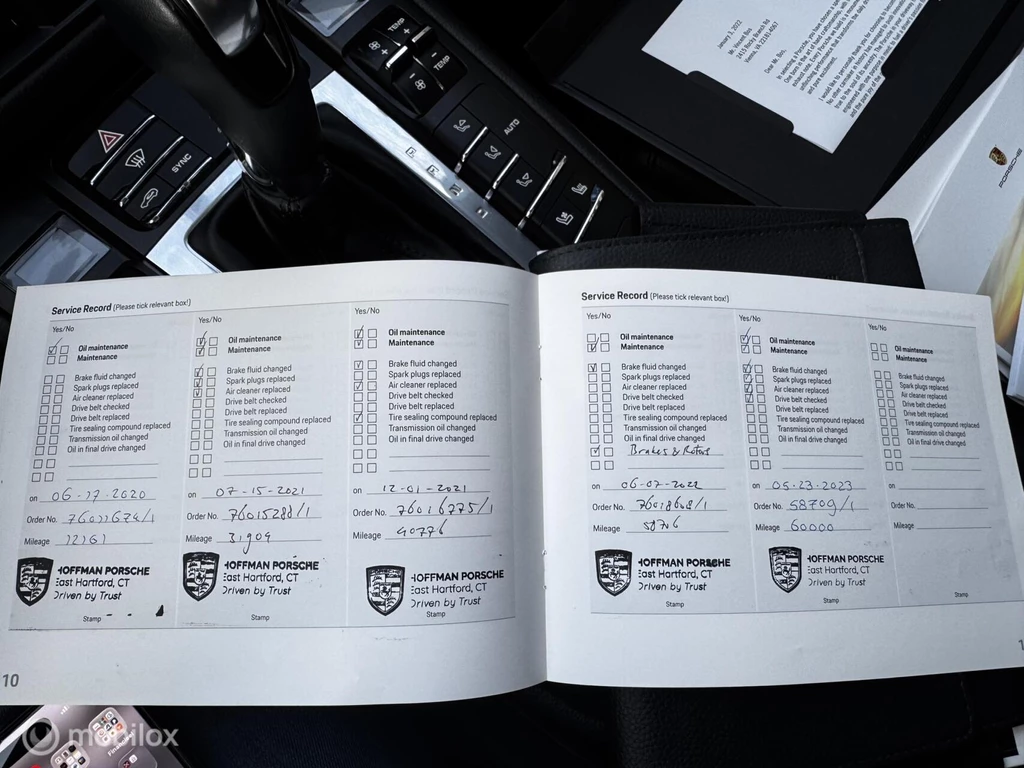 TEMP
TEMP
AUTO
SYNC
January 3, 2022
Mr. Vincent Boo,
2415 Rocky Branch Rd
Vienna, VA 22181-4067
Dear Mr. Boo,
PORSCHE
Service Record (Please tick relevant box!)
Yes/No
Oil maintenance
Maintenance
Brake fluid changed
Spark plugs replaced
Air cleaner replaced
Drive belt checked
Drive belt replaced
Tire sealing compound replaced
Transmission oil changed
Oil in final drive changed
on 06-17-2020
Order No.
Mileage 12161
HOFFMAN PORSCHE
East Hartford, CT
Driven by Trust
Stamp
Yes/No
Oil maintenance
Maintenance
Brake fluid changed
Spark plugs replaced
Air cleaner replaced
Drive belt checked
Drive belt replaced
Tire sealing compound replaced
Transmission oil changed
Oil in final drive changed
on 07-15-2021
Order No. 76015288/1
Mileage 31904
HOFFMAN PORSCHE
East Hartford, CT
Driven by Trust
Stamp
Yes/No
Oil maintenance
Maintenance
Brake fluid changed
Spark plugs replaced
Air cleaner replaced
Drive belt checked
Drive belt replaced
Tire sealing compound replaced
Transmission oil changed
Oil in final drive changed
on 12-01-2021
Order No. 76016775/1
Mileage 40776
HOFFMAN PORSCHE
East Hartford, CT
Driven by Trust
Stamp
10
Service Record (Please tick relevant box!)
Yes/No
Oil maintenance
Maintenance
Brake fluid changed
Spark plugs replaced
Air cleaner replaced
Drive belt checked
Drive belt replaced
Tire sealing compound replaced
Transmission oil changed
Oil in final drive changed
Brakes & Rotors
on 06-07-2022
Order No. 76018608/1
Mileage 50706
HOFFMAN PORSCHE
East Hartford, CT
Driven by Trust
Stamp
Yes/No
Oil maintenance
Maintenance
Brake fluid changed
Spark plugs replaced
Air cleaner replaced
Drive belt checked
Drive belt replaced
Tire sealing compound replaced
Transmission oil changed
Oil in final drive changed
on 05-23-2023
Order No. 58709/1
Mileage 60000
HOFFMAN PORSCHE
East Hartford, CT
Driven by Trust
Stamp
Yes/No
Oil maintenance
Maintenance
Brake fluid changed
Spark plugs replaced
Air cleaner replaced
Drive belt checked
Drive belt replaced
Tire sealing compound replaced
Transmission oil changed
Oil in final drive changed
on
Order No.
Mileage
Stamp
mobilox